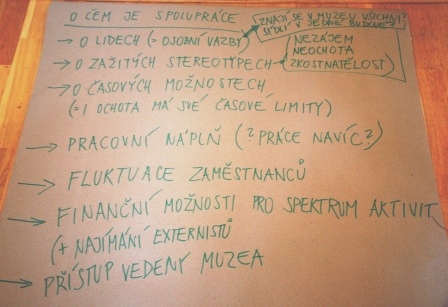 O ČEM JE SPOLUPRÁCE
ZNAJÍ SE V MUZEU VŠICHNI?
SÍDLÍ V JEDNÉ BUDOVĚ?
→ O LIDECH (= OSOBNÍ VAZBY)
NEZÁJEM
NEOCHOTA
ZKOSTNATĚLOST
→ O ZAŽITÝCH STEREOTYPECH
→ O ČASOVÝCH MOŽNOSTECH
(= I OCHOTA MÁ SVÉ ČASOVÉ LIMITY)
→ PRACOVNÍ NÁPLŇ (? PRÁCE NAVÍC?)
→ FLUKTUACE ZAMĚSTNANCŮ
→ FINANČNÍ MOŽNOSTI PRO SPEKTRUM AKTIVIT
(+ NAJÍMÁNÍ EXTERNISTŮ
→ PŘÍSTUP VEDENÍ MUZEA